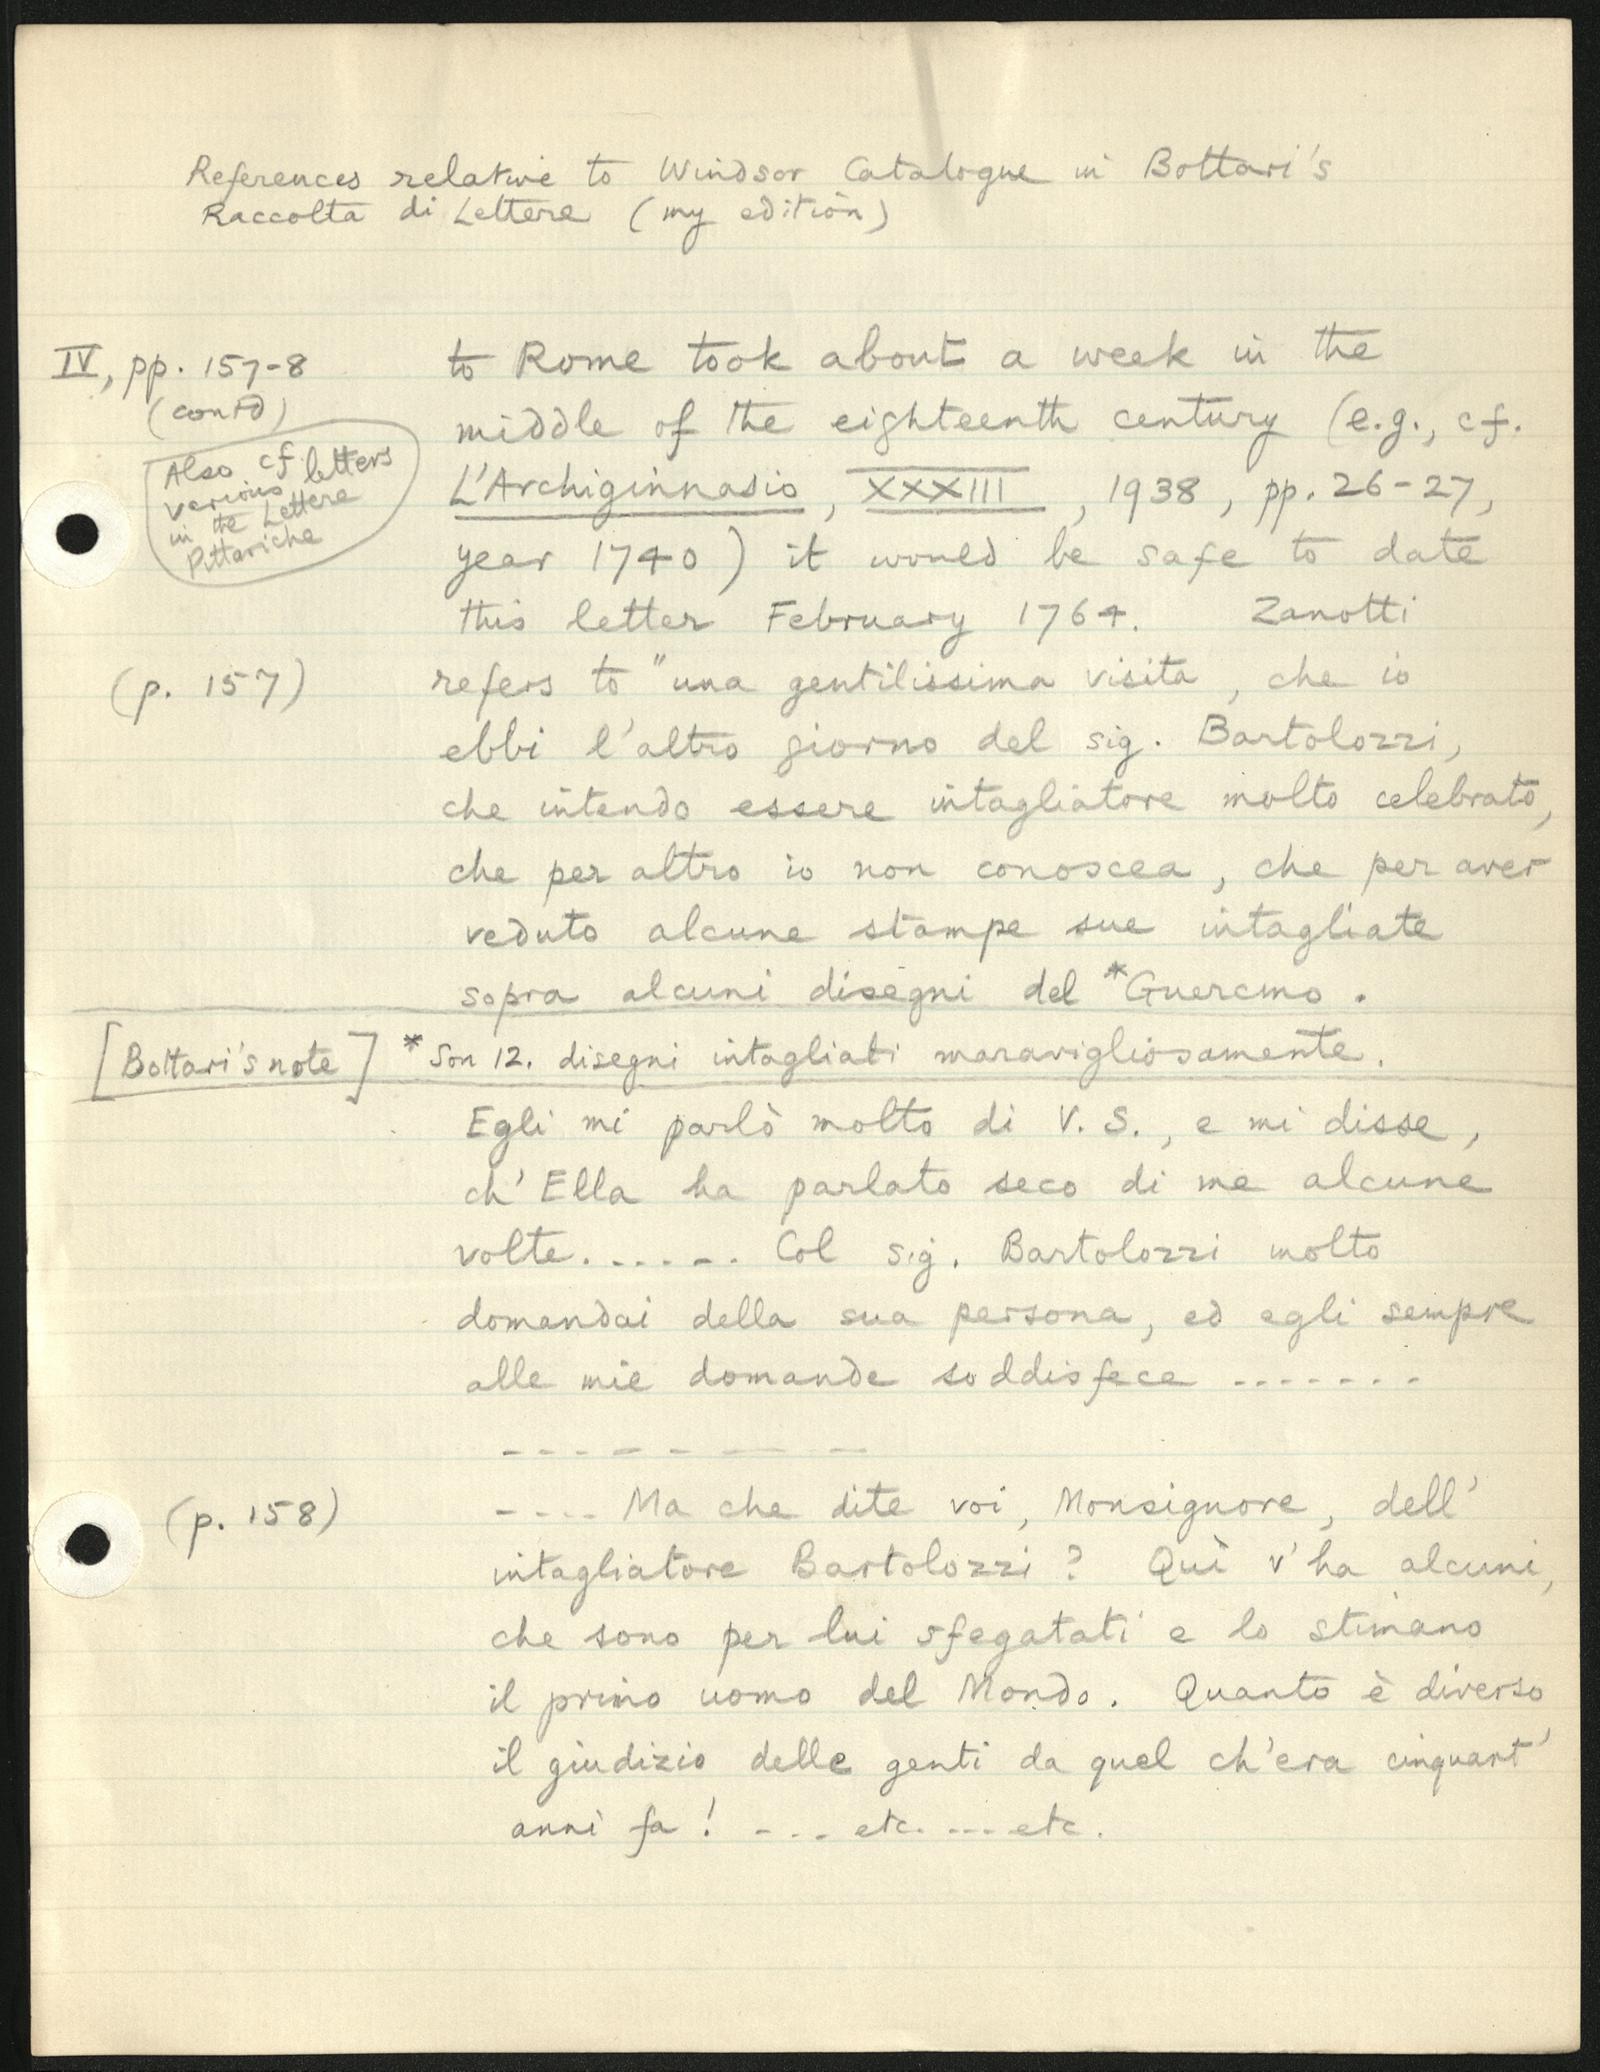 References relative to Windsor Catalogue in Bottari's
Raccolta di Lettere (my edition)
IV, pp. 157-8
(contd)
Also cf letters
various
in the Lettere
Pittoriche
to Rome took about a week in the
middle of the eighteenth century (e.g., cf.
L'Archiginnasio, XXXIII, 1938, pp. 26-27,
year 1740) it would be safe to date
this letter February 1764. Zanotti
(p. 157)
refers to "una gentilissima visita, che io
ebbi l'altro giorno del sig. Bartolozzi,
che intendo essere intagliatore molto celebrato,
che per altro io non conoscea, che per aver
veduto alcune stampe sue intagliate
sopra alcuni disegni del *Guercino.
[Bottari's note] * Son 12. disegni intagliati maravigliosamente.
Egli mi parlò molto di V. S., e mi disse,
ch' Ella ha parlato seco di me alcune
volte. . . . . . . Col sig. Bartolozzi molto
domandai della sua persona, ed egli sempre
alle mie domande soddisfece . . . . . . .
- - - - - - - -
(p. 158)
- - - - Ma che dite voi, Monsignore, dell'
intagliatore Bartolozzi? Quì v'ha alcuni,
che sono per lui sfegatati e lo stimano
il primo uomo del Mondo. Quanto è diverso
il giudizio delle genti da quel ch'era cinquant'
anni fa! - - - etc. - - - etc.